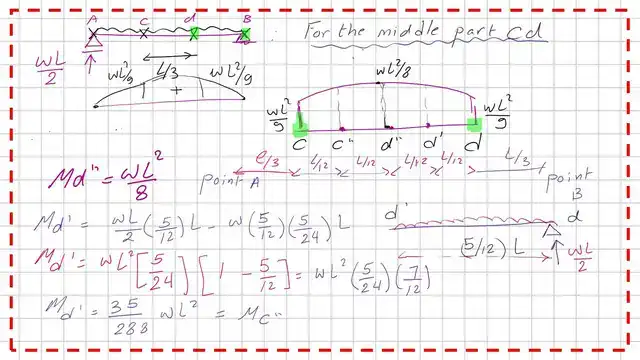 A c d B
For the middle part Cd
wL/2
wL²/9 L/3 wL²/9
+
wL²/8
wL²/9 wL²/9
c c" d" d' d
l/3 L/12 L/12 L/12 L/12 L/3
point A
point B
Md" = wL²/8
Md' = wL/2 (5/12)L - w(5/12)(5/24)L
d' d
(5/12) L
wL/2
Md' = wL² [5/24] [1 - 5/12] = wL² (5/24)(7/12)
Md' = 35/288 wL² = Mc"